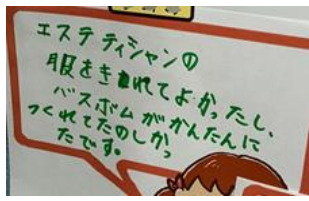 エステティシャンの
服をきれてよかったし、
バスボムがかんたんに
つくれてたのしかっ
たです。